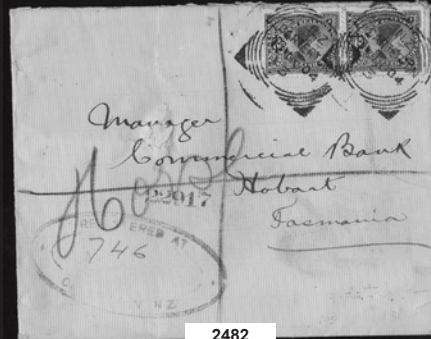 Manager
Commercial Bank
Hobart
Tasmania
2917
REGISTERED AT
746
N.Z
2482